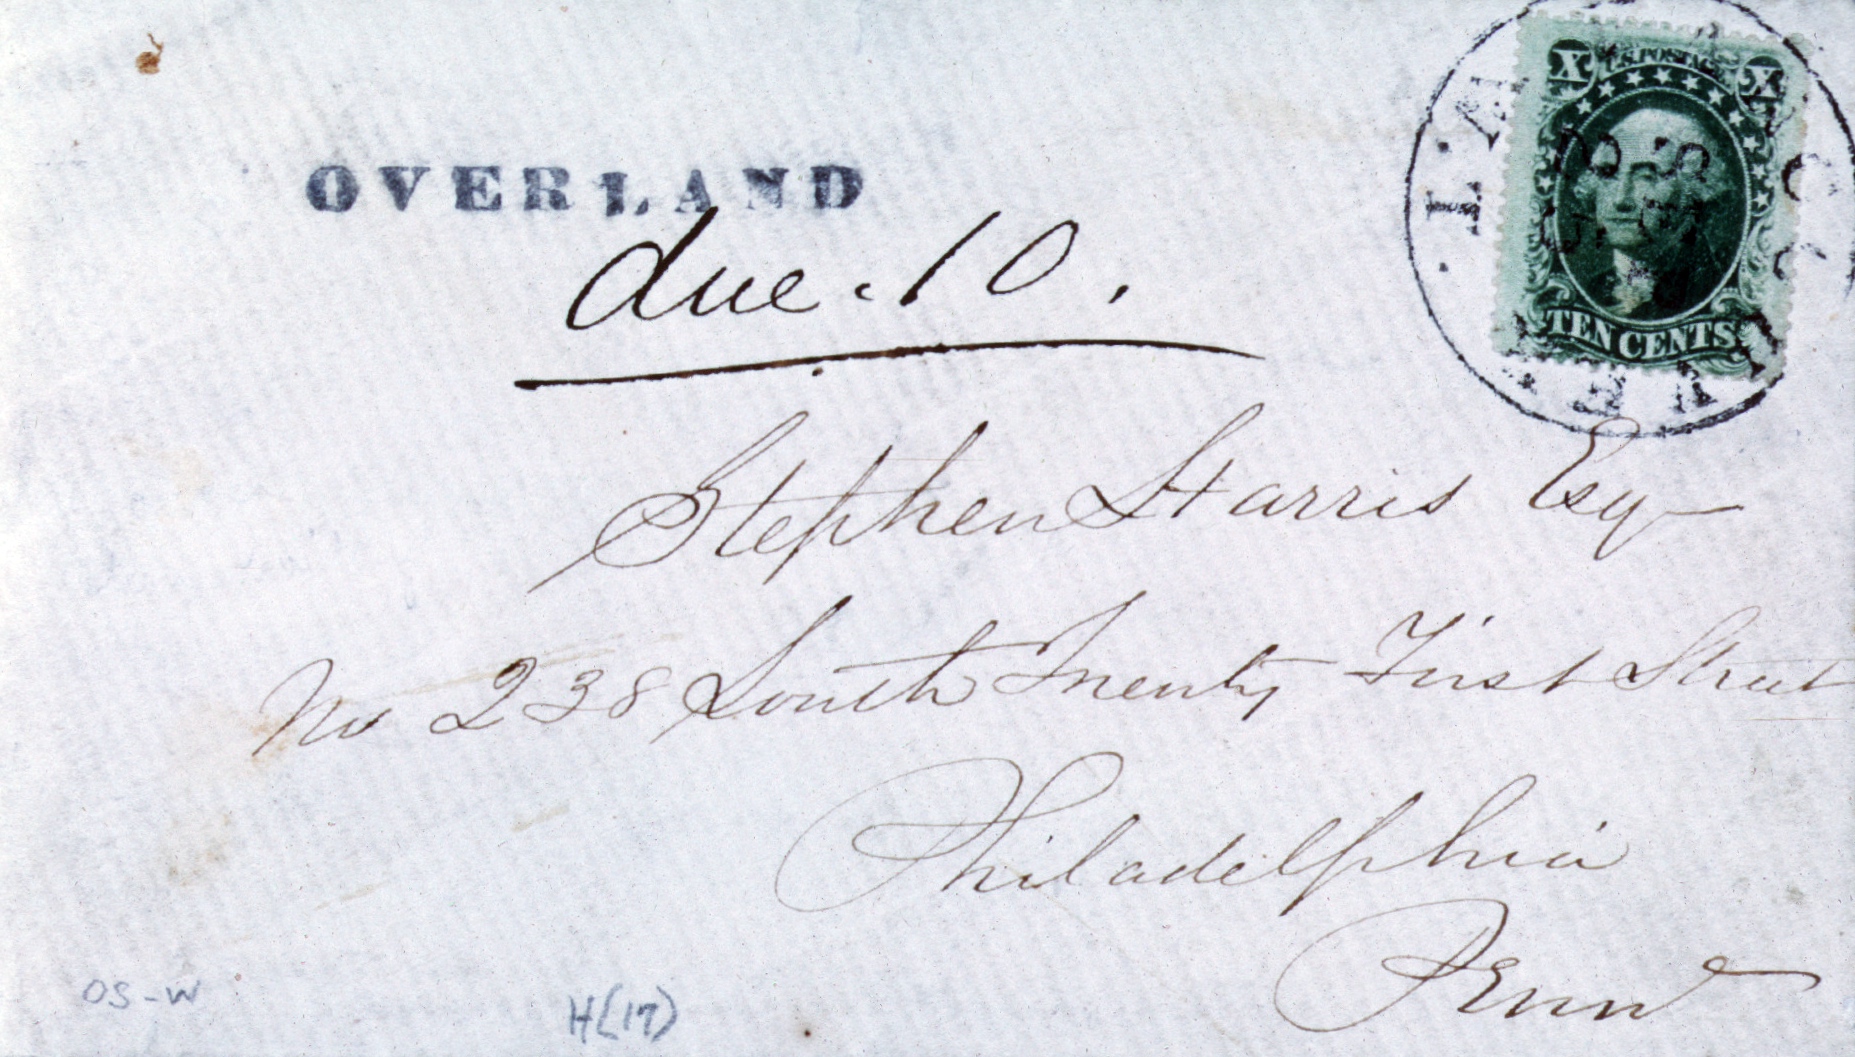 OVERLAND
due. 10.
U.S. POSTAGE
X X
TEN CENTS
Stephen Harris Esq
No 238 South Twenty First Street
Philadelphia
Penn
OS-W
H(17)